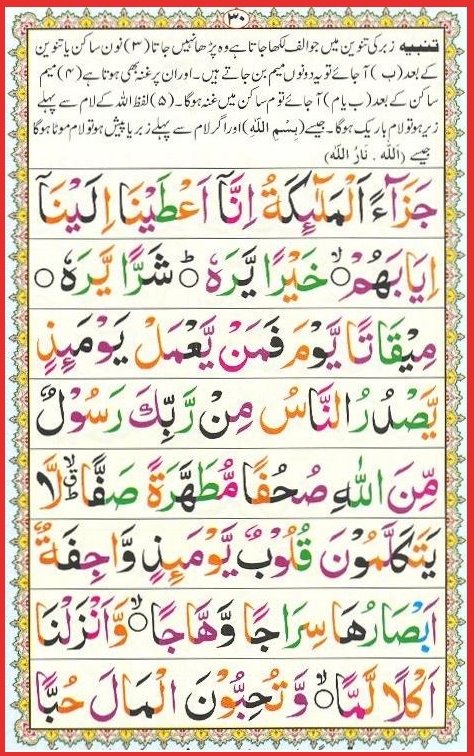 ۳۰
تنبیہ زبر کی تنوین میں جو الف لکھا جاتا ہے وہ پڑھا نہیں جاتا (۳) نون ساکن یا تنوین
کے بعد (ب) آ جائے تو یہ دونوں میم بن جاتے ہیں۔ اور ان پر غنہ بھی ہوتا ہے (۴) میم
ساکن کے بعد (ب یا م) آ جائے تو م ساکن میں غنہ ہوگا۔ (۵) لفظ اللہ کے لام سے پہلے
زیر ہو تو لام باریک ہوگا۔ جیسے (بِسْمِ اللّٰهِ) اور اگر لام سے پہلے زبر یا پیش ہو تو لام موٹا ہوگا
جیسے (اَللّٰهُ ۔ نَارُ اللّٰهِ)
جَزَآءً اَلْمَلٰٓئِكَةُ اِنَّآ اَعْطَيْنَا اِلَيْنَآ
اِيَابَهُمْ ۙ○ خَيْرًا يَّرَهٗ ؕ○ شَرًّا يَّرَهٗ ○
مِيْقَاتًا يَّوْمَ فَمَنْ يَّعْمَلْ يَوْمَئِذٍ
يَّصْدُرُ النَّاسُ مِنْ رَّبِّكَ رَسُوْلٌ
مِّنَ اللّٰهِ صُحُفًا مُّطَهَّرَةً صَفًّا ۙق ؕ لَّا
يَتَكَلَّمُوْنَ قُلُوْبٌ يَّوْمَئِذٍ وَّاجِفَةٌ
اَبْصَارُهَا سِرَاجًا وَّهَّاجًا ۙ○ وَّاَنْزَلْنَا
اَكْلًا لَّمًّا ۙ○ وَّتُحِبُّوْنَ الْمَالَ حُبًّا